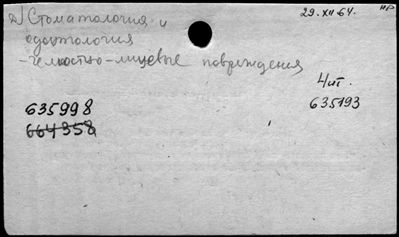 2) Стоматология и
29.XII.64.
одонтология
-челюстно-лицевые повреждения
4 ит.
635998
635193
664358